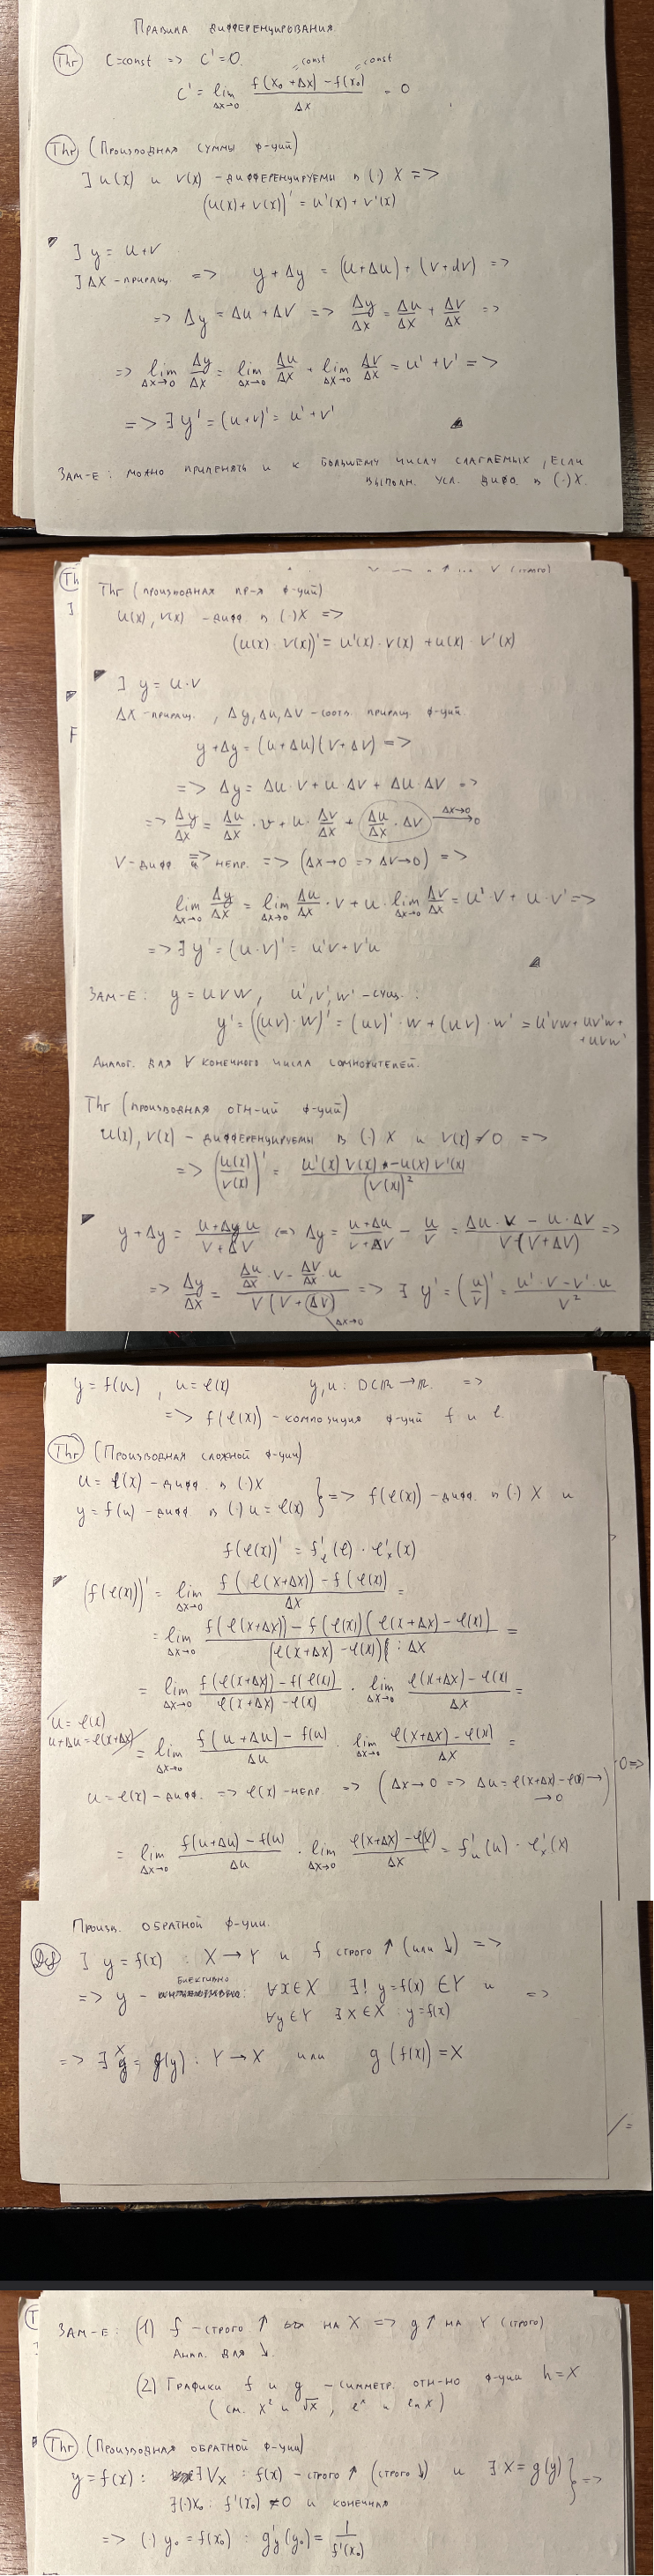 Правила дифференцирования.
Thr C=const => C' = 0. const const
C' = lim Δx→0 (f(x₀+Δx) - f(x₀))/Δx = 0
Thr (Производная суммы ф-ций)
] u(x) и v(x) - дифференцируемы в (·) X =>
(u(x)+v(x))' = u'(x)+v'(x)
] y = u+v
] ΔX - приращ. => y+Δy = (u+Δu)+(v+dv) =>
=> Δy = Δu + ΔV => Δy/Δx = Δu/Δx + ΔV/Δx =>
=> lim Δx→0 Δy/Δx = lim Δx→0 Δu/Δx + lim Δx→0 Δv/Δx = u' + v' =>
=> ∃ y' = (u+v)' = u' + v'
Зам-е: можно применять и к большему числу слагаемых, если
выполн. усл. дифф. в (·) X.
Thr (производная пр-я ф-ций)
u(x), v(x) - дифф в (·) X =>
(u(x)·v(x))' = u'(x)·v(x) + u(x)·v'(x)
] y = u·v
ΔX - приращ., Δy, Δu, ΔV - соотв. приращ. ф-ций.
y+Δy = (u+Δu)(v+ΔV) =>
=> Δy = Δu·V + u·ΔV + Δu·ΔV =>
=> Δy/Δx = Δu/Δx·v + u·Δv/Δx + Δu/Δx·ΔV Δx→0 → 0
V - дифф => непр. => (Δx→0 => ΔV→0) =>
lim Δx→0 Δy/Δx = lim Δx→0 Δu/Δx·V + u·lim Δx→0 ΔV/Δx = u'·V + u·v' =>
=> ∃ y' = (u·v)' = u'v + v'u
Зам-е: y = uvw, u', v', w' - сущ.:
y' = ((uv)·w)' = (uv)'·w + (uv)·w' = u'vw + uv'w +
+ uvw'
Аналог. для ∀ конечного числа сомножителей.
Thr (производная отн-ий ф-ций)
u(x), v(x) - дифференцируемы в (·) X и V(x) ≠ 0 =>
=> (u(x)/v(x))' = (u'(x) v(x) - u(x) v'(x))/(v(x))²
y+Δy = (u+Δu)/(v+ΔV) <=> Δy = (u+Δu)/(v+ΔV) - u/v = (Δu·v - u·ΔV)/(V·(V+ΔV)) =>
=> Δy/Δx = (Δu/Δx·V - ΔV/Δx·u)/(V(V+ΔV)) => ∃ y' = (u/v)' = (u'·v - v'·u)/v²
Δx→0
y = f(u), u = φ(x) y, u: D⊂ℝ → ℝ. =>
=> f(φ(x)) - композиция ф-ций f и φ.
Thr (Производная сложной ф-ции)
u = φ(x) - дифф. в (·) X
y = f(u) - дифф в (·) u = φ(x) } => f(φ(x)) - дифф. в (·) X и
f(φ(x))' = f'φ(φ)·φ'x(x)
(f(φ(x)))' = lim Δx→0 (f(φ(x+Δx)) - f(φ(x)))/Δx =
= lim Δx→0 (f(φ(x+Δx)) - f(φ(x))(φ(x+Δx) - φ(x)))/((φ(x+Δx) - φ(x)) · Δx) =
= lim Δx→0 (f(φ(x+Δx)) - f(φ(x)))/(φ(x+Δx) - φ(x)) · lim Δx→0 (φ(x+Δx) - φ(x))/Δx =
u = φ(x)
u+Δu = φ(x+Δx)
= lim Δx→0 (f(u+Δu) - f(u))/Δu · lim Δx→0 (φ(x+Δx) - φ(x))/Δx =
u = φ(x) - дифф. => φ(x) - непр. => (Δx→0 => Δu = φ(x+Δx) - φ(x) → 0) =>
= lim Δx→0 (f(u+Δu) - f(u))/Δu · lim Δx→0 (φ(x+Δx) - φ(x))/Δx = f'u(u)·φ'x(x)
Произв. обратной ф-ции.
Df ] y = f(x) : X→Y и f строго ↑ (или ↓) =>
=> y - биективно: ∀x∈X ∃! y=f(x) ∈Y и =>
∀y∈Y ∃x∈X : y=f(x)
=> ∃ x = g(y) : Y→X или g(f(x)) = X
Зам-е: (1) f - строго ↑ на X => g ↑ на Y (строго)
Анал. для ↓.
(2) Графики f и g - симметр. отн-но ф-ции h = X
(см. x² и √x, eˣ и ln x)
Thr (Производная обратной ф-ции)
y = f(x) : ∃ Vx : f(x) - строго ↑ (строго ↓) и ∃ x = g(y) } =>
∃ (·) x₀ : f'(x₀) ≠ 0 и конечная
=> (·) y₀ = f(x₀) : g'y(y₀) = 1/f'(x₀)